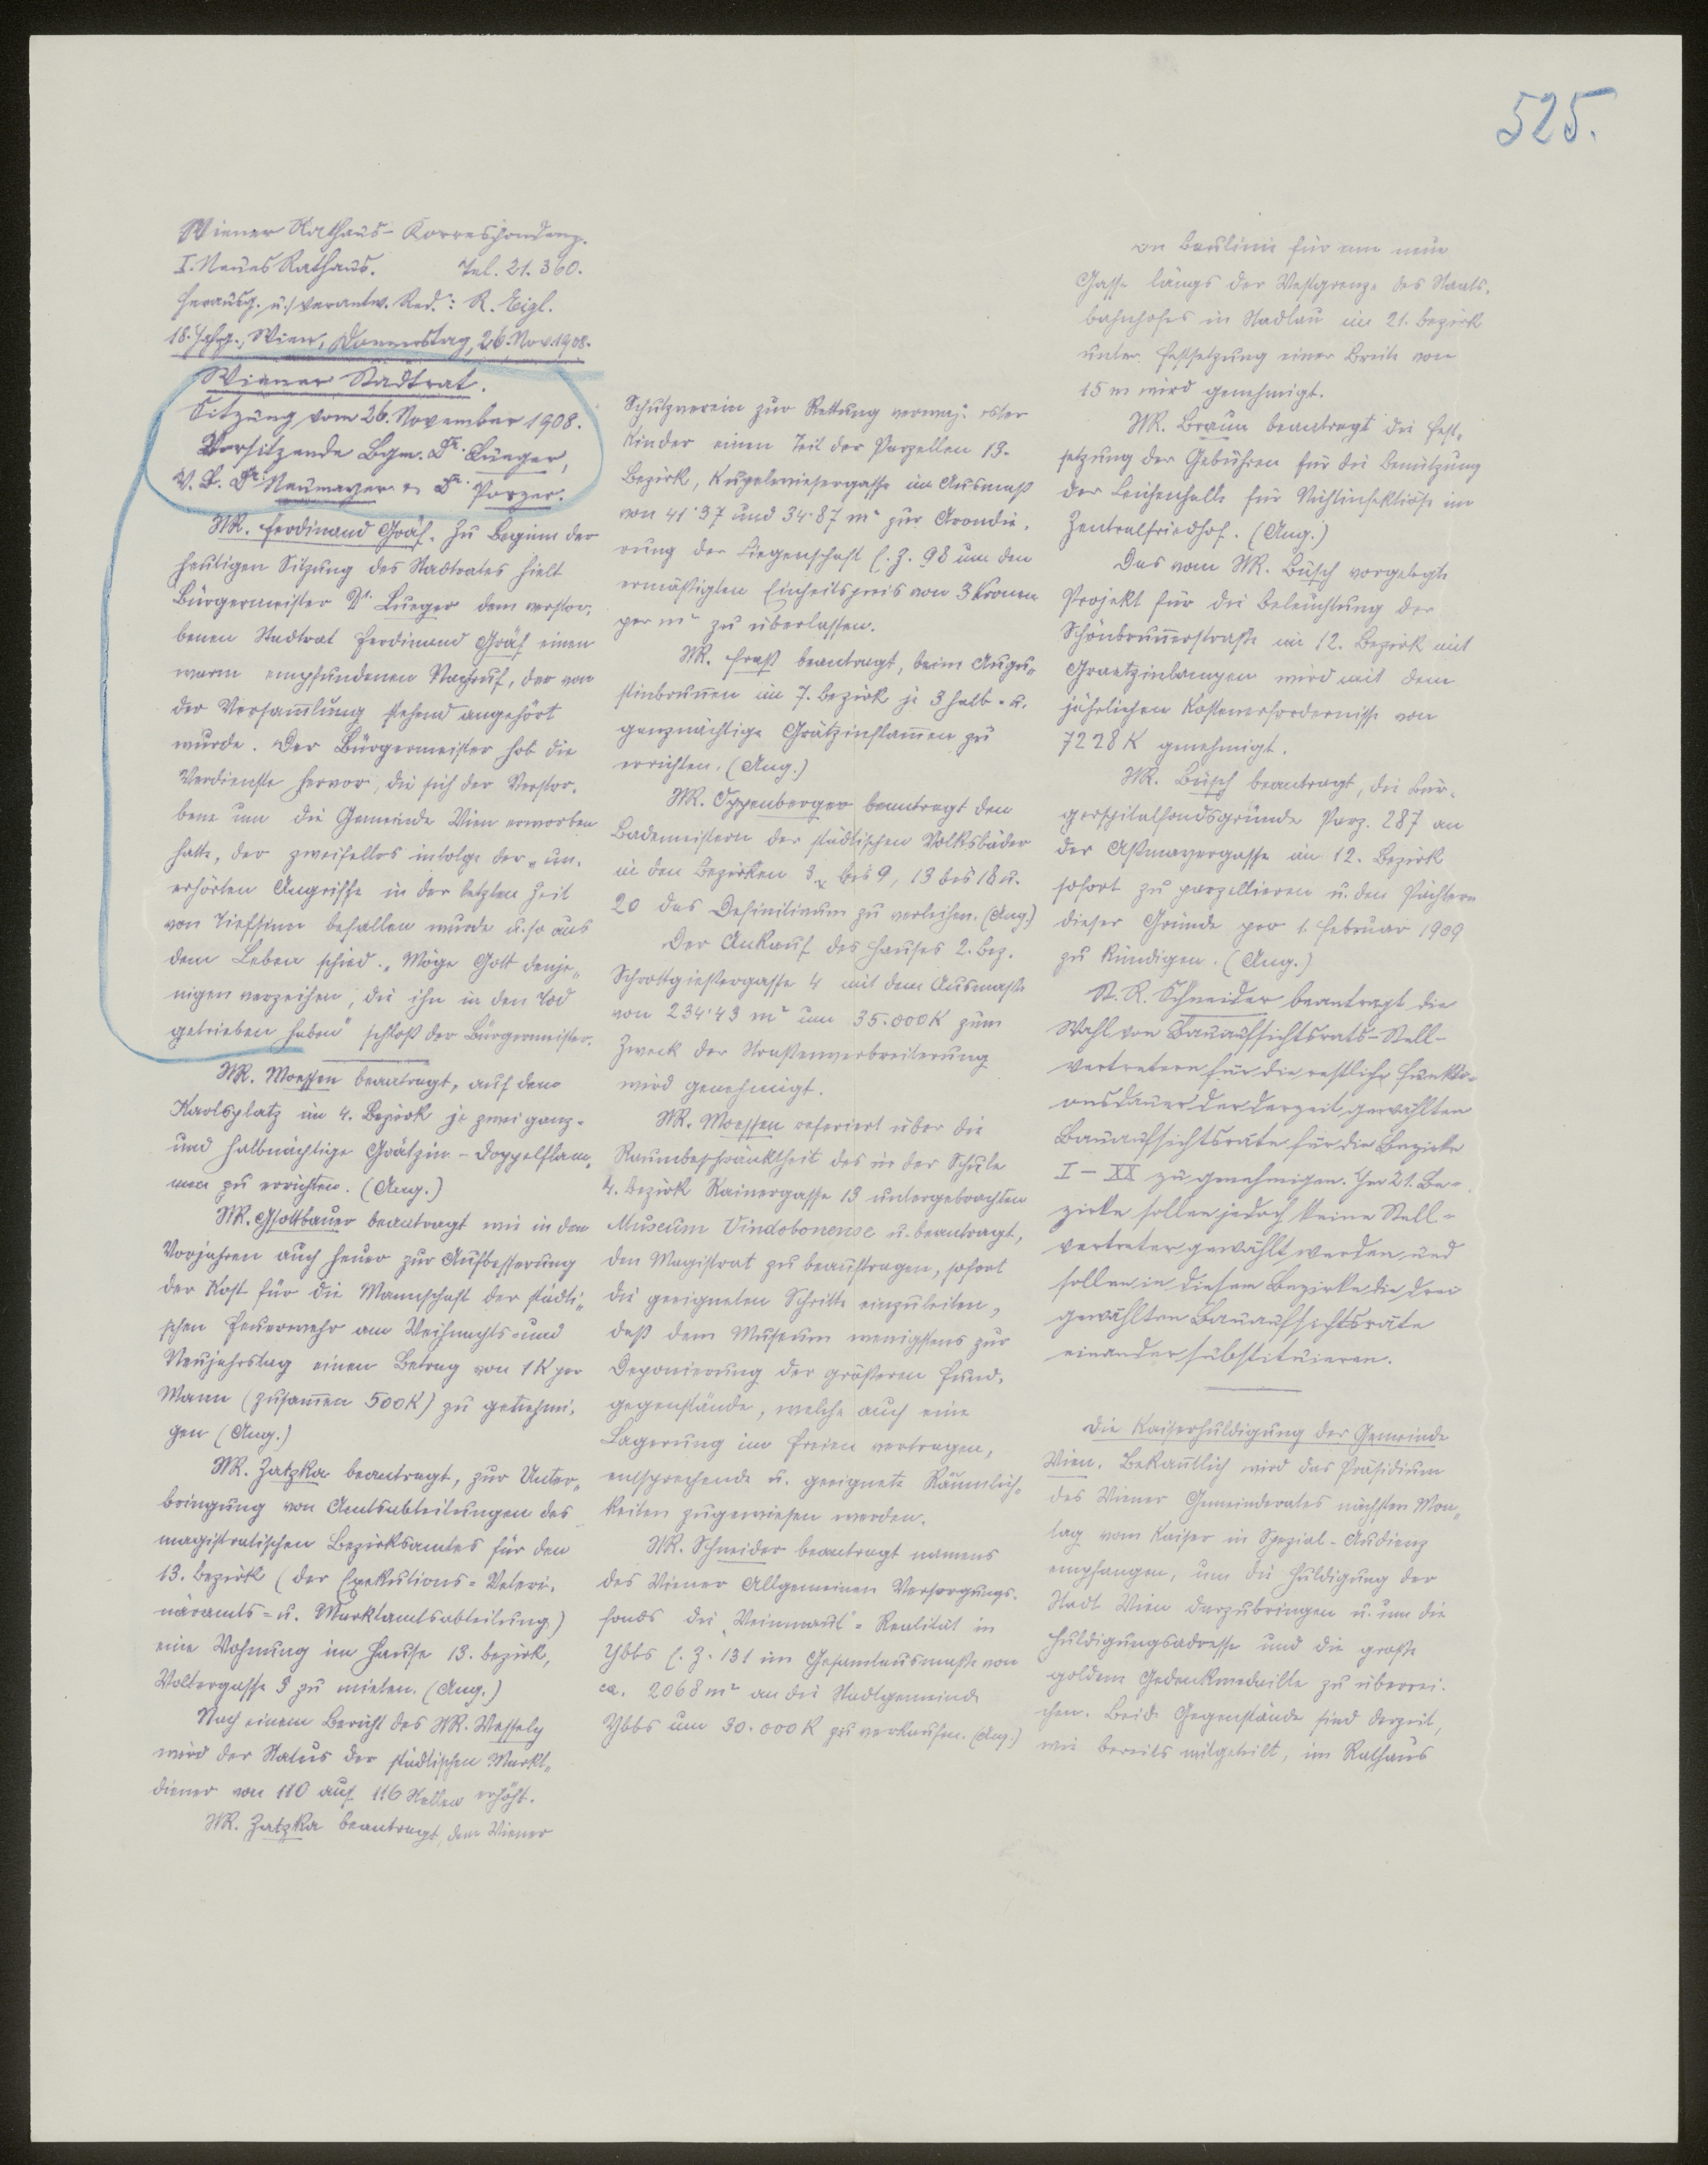 525.
Wiener Rathaus-Korrespondenz.
I. Neues Rathaus. Tel. 21.360.
Herausg. u. verantw. Red.: R. Eigl.
18. Jahrg., Wien, Donnerstag, 26. Nov. 1908.
Wiener Stadtrat.
Sitzung vom 26. November 1908.
Vorsitzende Bgm. Dr. Lueger,
V. B. Dr. Neumayer u. Dr. Porzer.
StR. Ferdinand Gräf. Zu Beginn der
heutigen Sitzung des Stadtrates hielt
Bürgermeister Dr. Lueger dem verstor-
benen Stadtrat Ferdinand Gräf einen
warm empfundenen Nachruf, der von
der Versam̅lung stehend angehört
wurde. Der Bürgermeister hob die
Verdienste hervor, die sich der Verstor-
bene um die Gemeinde Wien erworben
hatte, der zweifellos infolge der un-
erhörten Angriffe in der letzten Zeit
von Tiefsinn befallen wurde u. so aus
dem Leben schied. „Möge Gott denje-
nigen verzeihen, die ihn in den Tod
getrieben haben" schloß der Bürgermeister.
StR. Moessen beantragt, auf dem
Karlsplatz im 4. Bezirk je zwei ganz-
und halbnächtige Grätzin-Doppelflam-
men zu errichten. (Ang.)
StR. Gsottbauer beantragt wie in den
Vorjahren auch heuer zur Aufbesserung
der Kost für die Mannschaft der städti-
schen Feuerwehr am Weihnachts- und
Neujahrstag einen Betrag von 1 K per
Mann (zusam̅en 500 K) zu genehmi-
gen (Ang.)
StR. Zatzka beantragt, zur Unter-
bringung von Amtsabteilungen des
magistratischen Bezirksamtes für den
13. Bezirk (der Exekutions- Veteri-
näramts- u. Marktamtsabteilung)
eine Wohnung im Hause 13. Bezirk,
Woltergasse 3 zu mieten. (Ang.)
Nach einem Bericht des StR. Wessely
wird der Status der städtischen Markt-
diener von 110 auf 116 Stellen erhöht.
StR. Zatzka beantragt, dem Wiener
Schutzverein zur Rettung verwahrloster
Kinder einen Teil der Parzellen 13.
Bezirk, Kupelwiesergasse im Ausmaß
von 41·37 und 34·87 m² zur Arondie-
rung der Liegenschaft E. Z. 98 um den
ermäßigten Einheitspreis von 3 Kronen
per m² zu überlassen.
StR. Fraß beantragt, beim Augu-
stinbrun̅en im 7. Bezirk je 3 halb- u.
ganznächtige Grätzinflam̅en zu
errichten. (Ang.)
StR. Oppenberger beantragt den
Bademeistern der städtischen Volksbäder
in den Bezirken 3, bis 9, 13 bis 18 u.
20 das Definitivum zu verleihen. (Ang.)
Der Ankauf des Hauses 2. Bez.
Schrottgießergasse 4 mit dem Ausmaße
von 234·43 m² um 35.000 K zum
Zweck der Straßenverbreiterung
wird genehmigt.
StR. Moessen referiert über die
Raumbeschränktheit des in der Schule
4. Bezirk Rainergasse 13 untergebrachten
Museum Vindobonense u. beantragt,
den Magistrat zu beauftragen, sofort
die geeigneten Schritte einzuleiten,
daß dem Museum wenigstens zur
Deponierung der größeren Fund-
gegenstände, welche auch eine
Lagerung im Freien vertragen,
entsprechende u. geeignete Räumlich-
keiten zugewiesen werden.
StR. Schneider beantragt namens
des Wiener Allgemeinen Versorgungs-
fonds die „Weinmaut"-Realität in
Ybbs E. Z. 131 im Gesamtausmaße von
ca. 2068 m² an die Stadtgemeinde
Ybbs um 30.000 K zu verkaufen. (Ang.)
Baulinie für eine neue
Gasse längs der Westgrenze des Staats-
bahnhofes in Stadlau im 21. Bezirk
unter Festsetzung einer Breite von
15 m wird genehmigt.
StR. Braun beantragt die Fest-
setzung der Gebühren für die Benützung
der Leichenhalle für Nichtinfektiöse im
Zentralfriedhof. (Ang.)
Das vom StR. Büsch vorgelegte
Projekt für die Beleuchtung der
Schönbrun̅erstraße im 12. Bezirk mit
Graetzinlampen wird mit dem
jährlichen Kostenerfordernisse von
7228 K genehmigt.
StR. Büsch beantragt, die Bür-
gerspitalfondsgründe Parz. 287 an
der Aßmayergasse im 12. Bezirk
sofort zu parzellieren u. den Pächtern
dieser Gründe pro 1. Februar 1909
zu kündigen. (Ang.)
St. R. Schneider beantragt die
Wahl von Bauaufsichtsrats-Stell-
vertretern für die restliche Funkti-
onsdauer der derzeit gewählten
Bauaufsichtsräte für die Bezirke
I – XX zu genehmigen. Im 21. Be-
zirke sollen jedoch keine Stell-
vertreter gewählt werden und
sollen in diesem Bezirke die drei
gewählten Bauaufsichtsräte
einander substituieren.
Die Kaiserhuldigung der Gemeinde
Wien. Bekan̅tlich wird das Präsidium
des Wiener Gemeinderates nächsten Mon-
tag vom Kaiser in Spezial-Audienz
empfangen, um die Huldigung der
Stadt Wien darzubringen u. um die
Huldigungsadresse und die große
goldene Gedenkmedaille zu überrei-
chen. Beide Gegenstände sind derzeit,
wie bereits mitgeteilt, im Rathaus